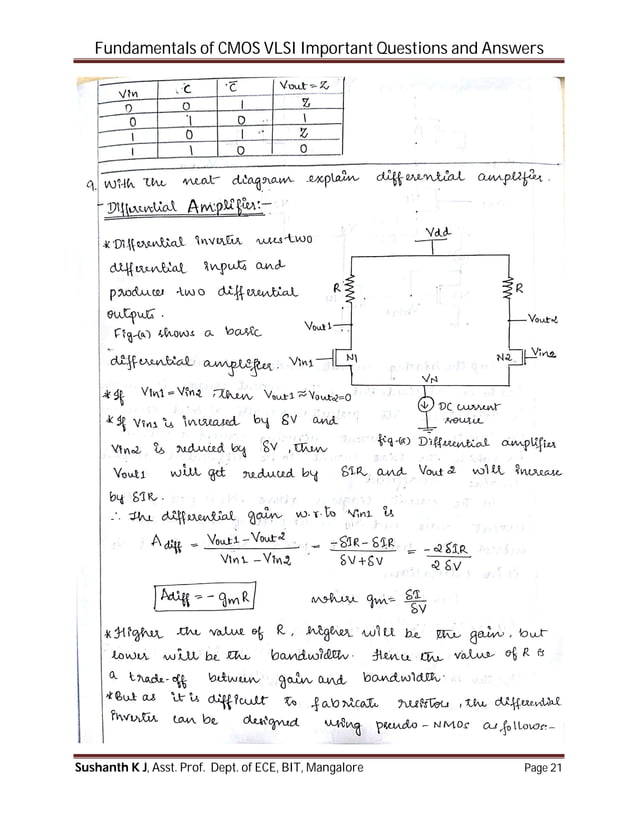 Fundamentals of CMOS VLSI Important Questions and Answers
Vin C C̅ Vout=Z
0 0 1 Z
0 1 0 1
1 0 1 Z
1 1 0 0
9. With the neat diagram explain differential amplifier.
Differential Amplifier:-
* Differential inverter uses two
differential inputs and
produces two differential
outputs.
Fig-(a) shows a basic
differential amplifier.
Vdd
R
R
Vout1
Vout2
Vin1
N1
N2
Vin2
VN
DC current
source
fig-(a) Differential amplifier
* If Vin1 = Vin2, then Vout1 ≈ Vout2=0
* If Vin1 is increased by δV and
Vin2 is reduced by δV, then
Vout1 will get reduced by δIR and Vout2 will increase
by δIR.
∴ The differential gain w.r.to Vin1 is
Adiff = Vout1 - Vout2 / Vin1 - Vin2 = -δIR - δIR / δV + δV = -2δIR / 2δV
Adiff = - gmR where gm = δI / δV
* Higher the value of R, higher will be the gain, but
lower will be the bandwidth. Hence the value of R is
a trade-off between gain and bandwidth.
* But as it is difficult to fabricate resistors, the differential
inverter can be designed using pseudo-NMOS as follows:-
Sushanth K J, Asst. Prof. Dept. of ECE, BIT, Mangalore Page 21